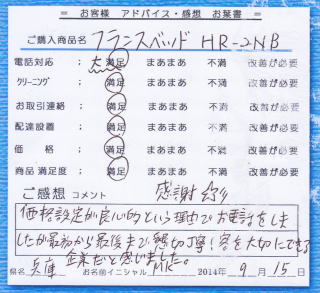 = お客様 アドバイス・感想 お葉書 =
ご購入商品名 フランスベッド HR-2NB
電話対応 : 大満足 まあまあ 不満 改善が必要
クリーニング : 満足 まあまあ 不満 改善が必要
お取引連絡 : 満足 まあまあ 不満 改善が必要
配達設置 : 満足 まあまあ 不満 改善が必要
価格 : 満足 まあまあ 不満 改善が必要
商品満足度 : 満足 まあまあ 不満 改善が必要
ご感想 コメント 感謝
価格設定が良心的という理由でお電話をしま
したが最初から最後まで懇切丁寧で客を大切にできる
企業だと感じました。
県名 兵庫 お名前イニシャル MK 2014年 9月 15日